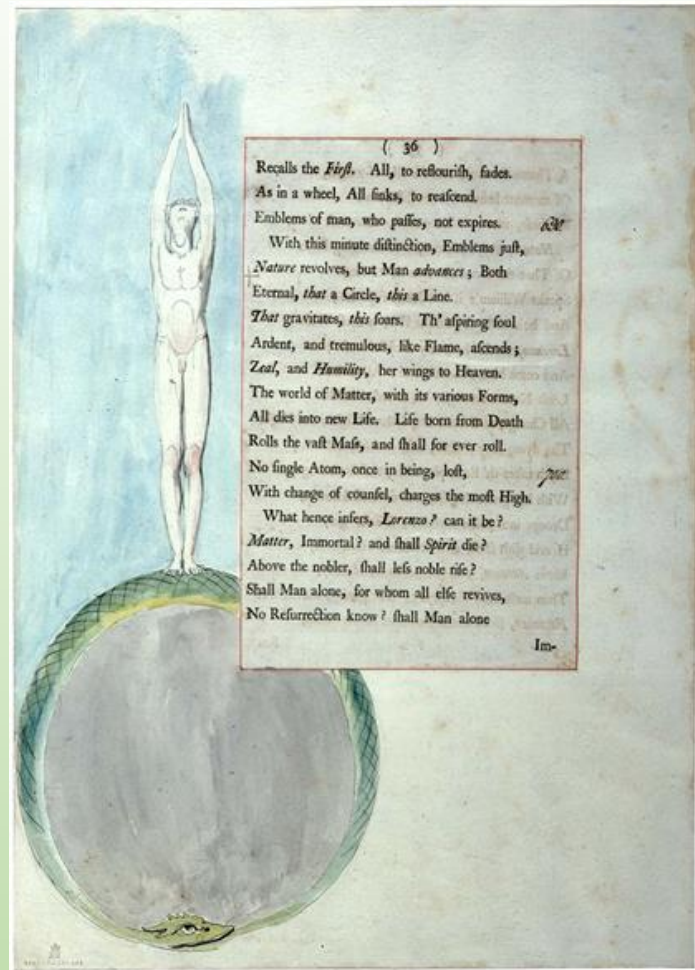 ( 36 )
Recalls the Firſt. All, to reflouriſh, fades.
As in a wheel, All ſinks, to reaſcend.
Emblems of man, who paſſes, not expires.
With this minute diſtinction, Emblems juſt,
Nature revolves, but Man advances; Both
Eternal, that a Circle, this a Line.
That gravitates, this ſoars. Th' aſpiring ſoul
Ardent, and tremulous, like Flame, aſcends;
Zeal, and Humility, her wings to Heaven.
The world of Matter, with its various Forms,
All dies into new Life. Life born from Death
Rolls the vaſt Maſs, and ſhall for ever roll.
No ſingle Atom, once in being, loſt,
With change of counſel, charges the moſt High.
What hence infers, Lorenzo? can it be?
Matter, Immortal? and ſhall Spirit die?
Above the nobler, ſhall leſs noble riſe?
Shall Man alone, for whom all elſe revives,
No Reſurrection know? ſhall Man alone
Im-